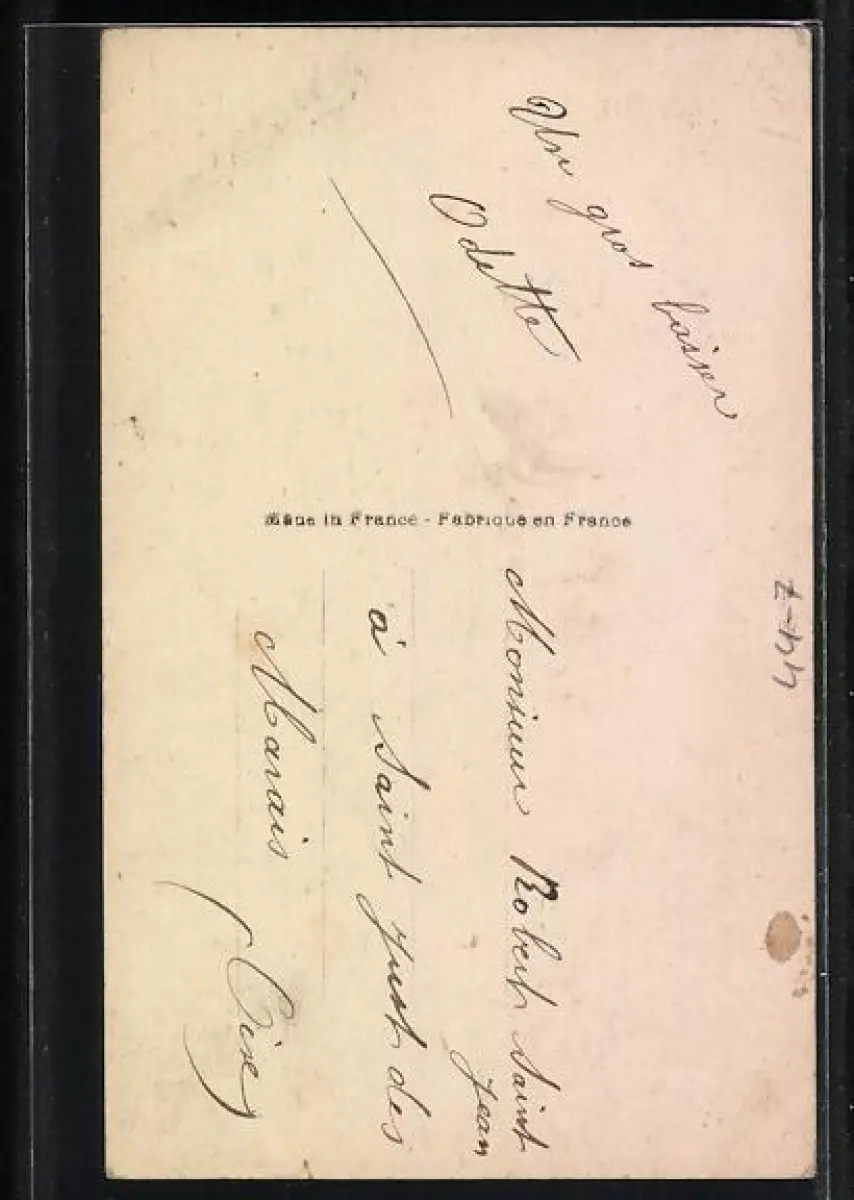 Un gros baiser
Odette
Made in France - Fabriqué en France
Monsieur Robert Saint
Jean
à Saint Just des
Marais
(Oise)